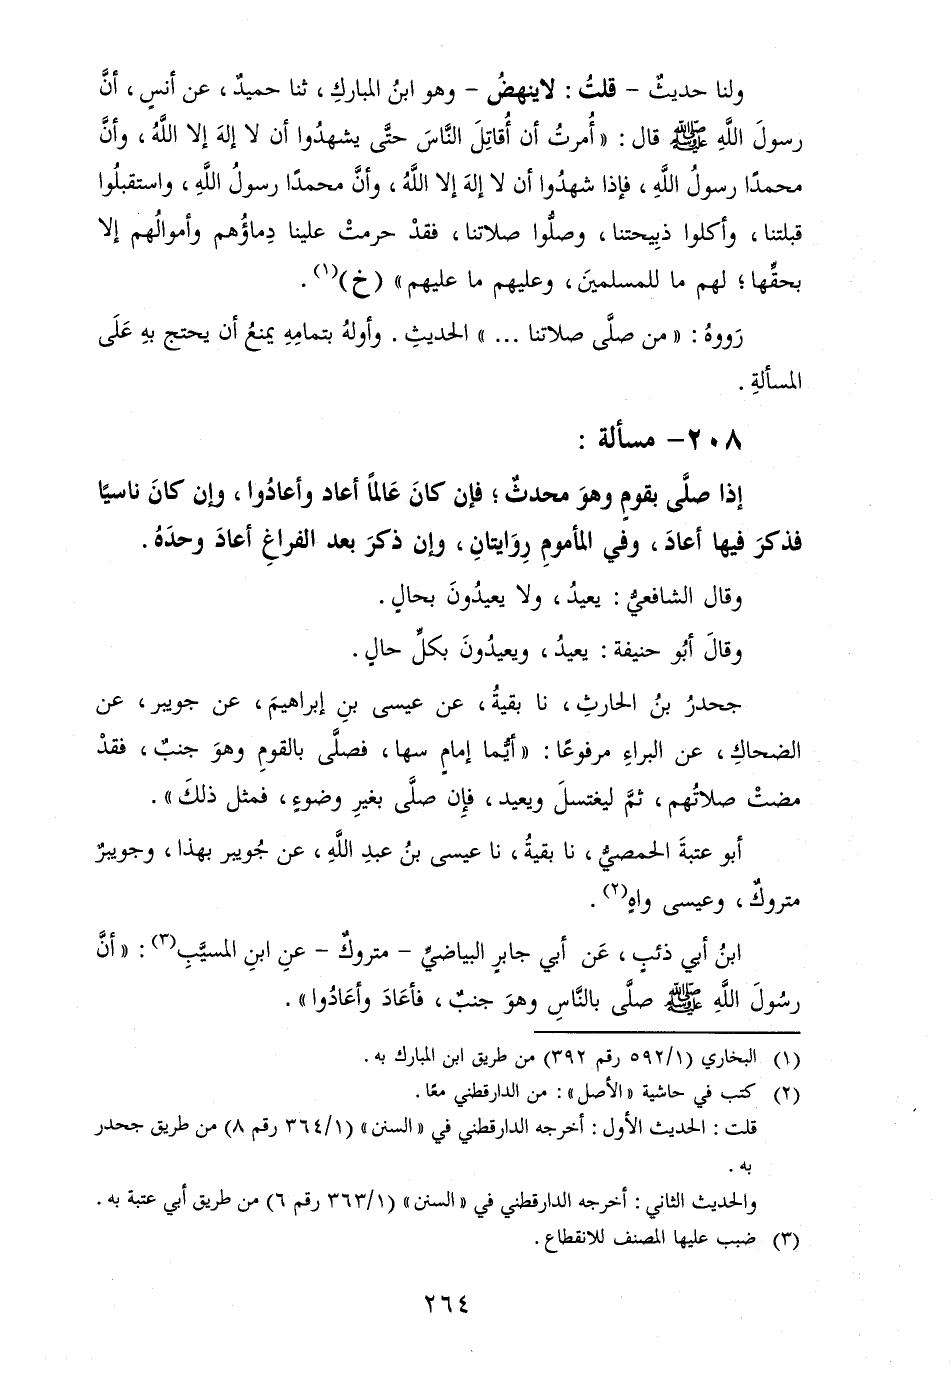 ولنا حديثٌ – قلتُ : لاينهضُ – وهو ابنُ المباركِ ، ثنا حميدٌ ، عن أنسٍ ، أنَّ
رسولَ اللَّهِ ﷺ قال : « أُمرتُ أن أُقاتِلَ النَّاسَ حتَّى يشهدُوا أن لا إلهَ إلا اللَّهُ ، وأنَّ
محمدًا رسولُ اللَّهِ ، فإذا شهدُوا أن لا إلهَ إلا اللَّهُ ، وأنَّ محمدًا رسولُ اللَّهِ ، واستقبلُوا
قبلتنا ، وأكلوا ذبيحتنا ، وصلُّوا صلاتنا ، فقدْ حرمتْ علينا دِماؤُهم وأموالُهم إلا
بحقِّها ؛ لهم ما للمسلمينَ ، وعليهم ما عليهم » (خ)(١) .
رَووهُ : « من صلَّى صلاتنا ... » الحديثِ . وأولهُ بتمامِهِ يمنعُ أن يحتج بهِ عَلَى
المسألةِ .
٢٠٨– مسألة :
إذا صلَّى بقومٍ وهوَ محدثٌ ؛ فإن كانَ عَالماً أعاد وأعادُوا ، وإن كانَ ناسيًا
فذكرَ فيها أعادَ ، وفي المأمومِ رِوَايتانِ ، وإن ذكرَ بعد الفراغِ أعادَ وحدَهُ .
وقال الشافعيُّ : يعيدُ ، ولا يعيدُونَ بحالٍ .
وقالَ أبُو حنيفة : يعيدُ ، ويعيدُونَ بكلِّ حالٍ .
جحدرُ بنُ الحارثِ ، نا بقيةُ ، عن عيسى بنِ إبراهيمَ ، عن جويبر ، عن
الضحاكِ ، عن البراءِ مرفوعًا : « أيُّما إمامٍ سها ، فصلَّى بالقومِ وهوَ جنبٌ ، فقدْ
مضتْ صلاتُهم ، ثمَّ ليغتسلَ ويعيد ، فإِن صلَّى بغيرِ وضوءٍ ، فمثل ذلكَ » .
أبو عتبةَ الحمصيُّ ، نا بقيةُ ، نا عيسى بنُ عبدِ اللَّهِ ، عن جُويبر بهذا ، وجويبرٌ
متروكٌ ، وعيسى واهٍ(٢) .
ابنُ أبي ذئبٍ ، عَن أبي جابرٍ البياضيِّ – متروكٌ – عنِ ابنِ المسيَّبِ(٣) : « أنَّ
رسُولَ اللَّهِ ﷺ صلَّى بالنَّاسِ وهوَ جنبٌ ، فأعَادَ وأعَادُوا » .
(١) البخاري (٥٩٢/١ رقم ٣٩٢) من طريق ابن المبارك به .
(٢) كتب في حاشية « الأصل » : من الدارقطني معًا .
قلت : الحديث الأول : أخرجه الدارقطني في « السنن » (٣٦٤/١ رقم ٨) من طريق جحدر
به .
والحديث الثاني : أخرجه الدارقطني في « السنن » (٣٦٣/١ رقم ٦) من طريق أبي عتبة به .
(٣) ضبب عليها المصنف للانقطاع .
٢٦٤